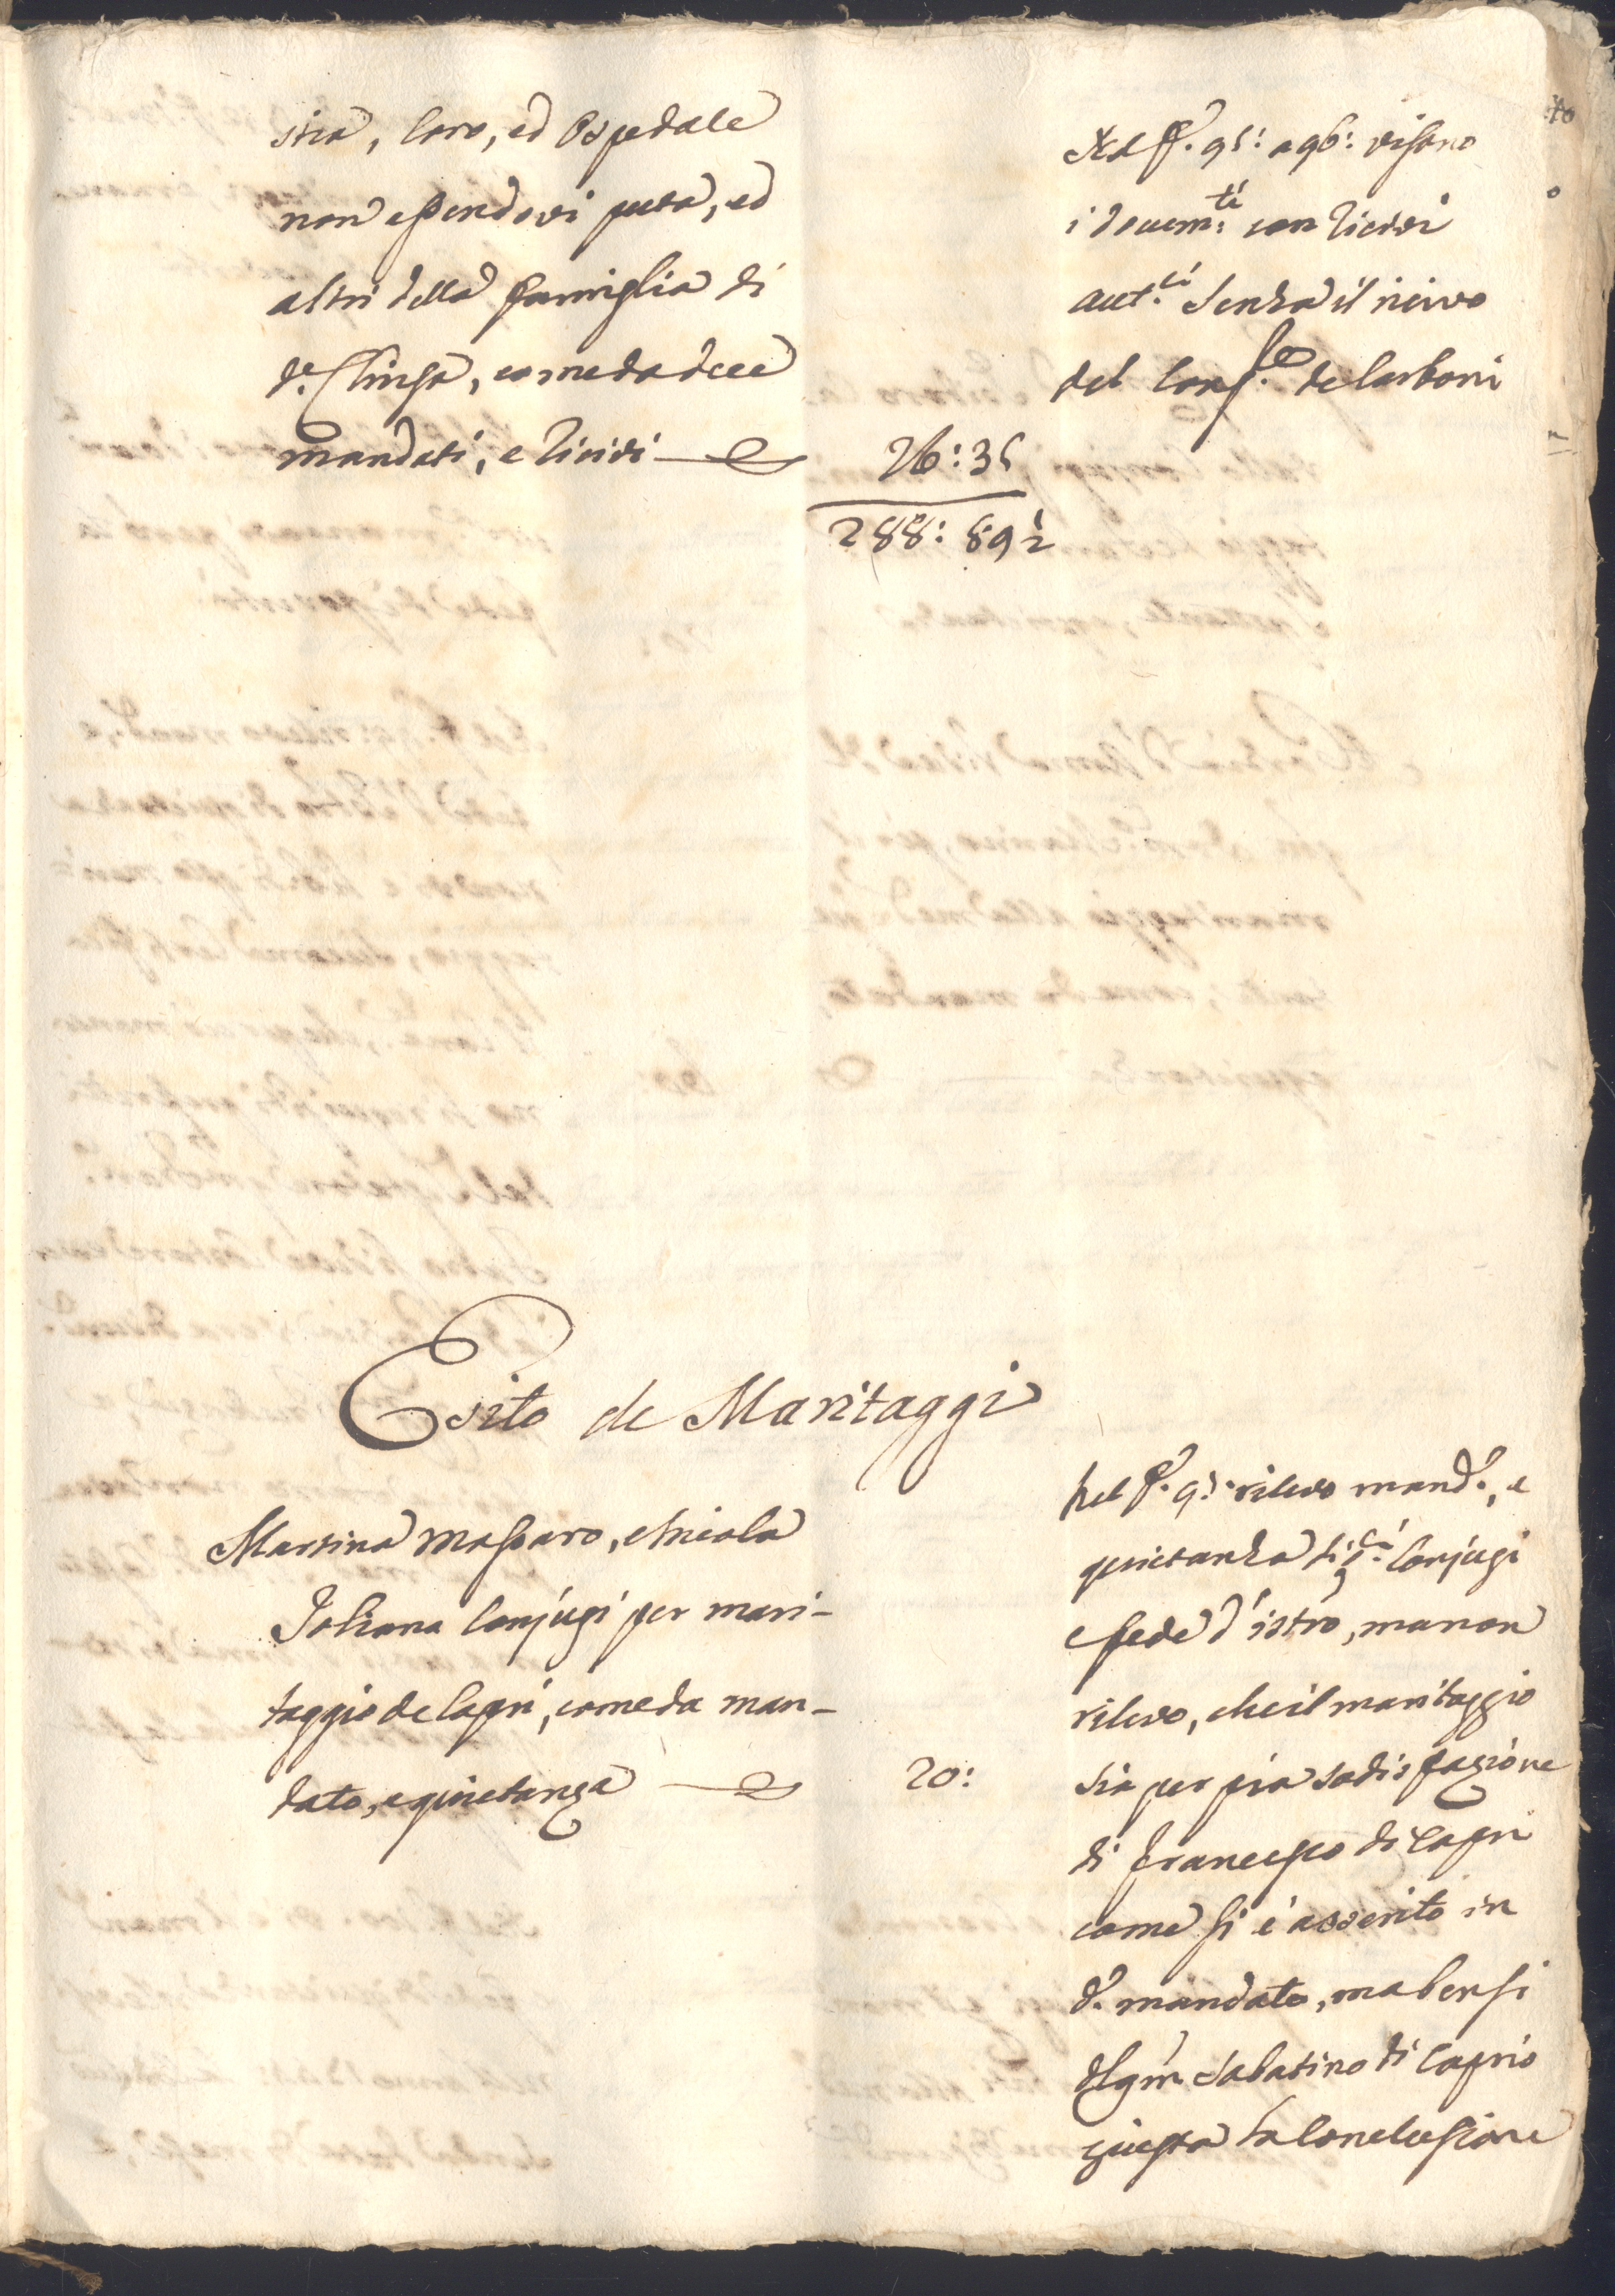 stia, Coro, ed Ospedale
non essendovi puta, ed
altri della famiglia di
d.ª Clinsa, come da dece
mandati, e ricivi
26:35
288: 89 ½
Nel f.º 95: a 96: visono
i docum:ti con ricivi
aut.ci senza il ricivo
del Conf.re de Carboni
Esito de Maritaggi
Martina Massaro, e Nicola
Foliana Conjugi per mari-
taggio de Capri, come da man-
dato, e quietanza
20:
Nel f.º 97: rilevo mand.º, e
quietanza di Conjugi
e fede d'istro, ma non
rilevo, che il maritaggio
sia per pia sodisfazione
di Francesco di Capri
come si è asserito in
d.º mandato, ma bensi
del qm Sabatino di Caprio
giusta la Conclusione